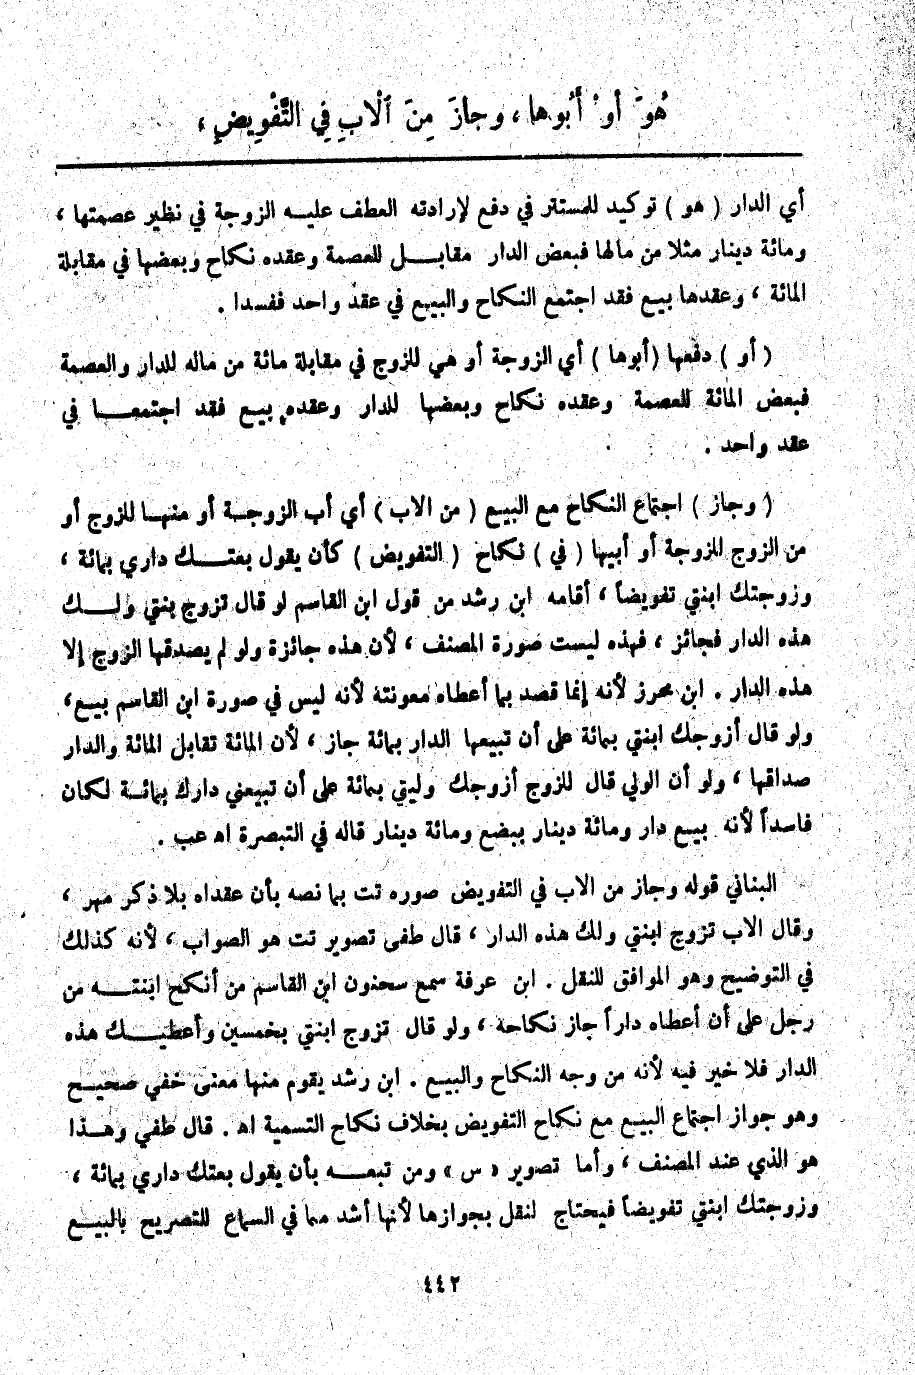 هُوَ أَوْ أَبُوهَا ، وجازَ مِنَ ٱلْابِ فِي التَّفْوِيضِ ،
أي الدار ( هو ) توكيد للمستتر في دفع لإرادته العطف عليــه الزوجة في نظير عصمتها ،
ومائة دينار مثلا من مالها فبعض الدار مقابــل للعصمة وعقده نكاح وبعضها في مقابلة
المائة ، وعقدها بيع فقد اجتمع النكاح والبيع في عقد واحد ففسدا .
( أو ) دفعها ( أبوها ) أي الزوجة أو هي للزوج في مقابلة مائة من ماله للدار والعصمة
فبعض المائة للعصمة وعقده نكاح وبعضها للدار وعقده بيع فقد اجتمعــا في
عقد واحد .
( وجاز ) اجتماع النكاح مع البيع ( من الاب ) أي أب الزوجــة أو منهــا للزوج أو
من الزوج للزوجة أو أبيها ( في ) نكاح ( التفويض ) كأن يقول بعتــك داري بمائة ،
وزوجتك ابنتي تفويضاً ، أقامه ابن رشد من قول ابن القاسم لو قال تزوج بنتي ولــك
هذه الدار فجائز ، فهذه ليست صورة المصنف ، لأن هذه جائزة ولو لم يصدقها الزوج إلا
هذه الدار . ابن محرز لأنه إنما قصد بما أعطاه معونته لأنه ليس في صورة ابن القاسم بيع ،
ولو قال أزوجك ابنتي بمائة على أن تبيعها الدار بمائة جاز ، لأن المائة تقابل المائة والدار
صداقها ، ولو أن الولي قال للزوج أزوجك وليتي بمائة على أن تبيعني دارك بمائــة لكان
فاسداً لأنه بيع دار ومائة دينار ببضع ومائة دينار قاله في التبصرة اهـ عب .
البناني قوله وجاز من الاب في التفويض صوره تت بما نصه بأن عقداه بلا ذكر مهر ،
وقال الاب تزوج ابنتي ولك هذه الدار ، قال طفى تصوير تت هو الصواب ، لأنه كذلك
في التوضيح وهو الموافق للنقل . ابن عرفة سمع سحنون ابن القاسم من أنكح ابنتــه من
رجل على أن أعطاه داراً جاز نكاحه ، ولو قال تزوج ابنتي بخمسين وأعطيــك هذه
الدار فلا خير فيه لأنه من وجه النكاح والبيع . ابن رشد يقوم منها معنى خفي صحيــح
وهو جواز اجتماع البيع مع نكاح التفويض بخلاف نكاح التسمية اهـ . قال طفي وهــذا
هو الذي عند المصنف ، وأما تصوير « س » ومن تبعــه بأن يقول بعتك داري بمائة ،
وزوجتك ابنتي تفويضاً فيحتاج لنقل بجوازها لأنها أشد مما في السماع للتصريح بالبيــع
٤٤٢